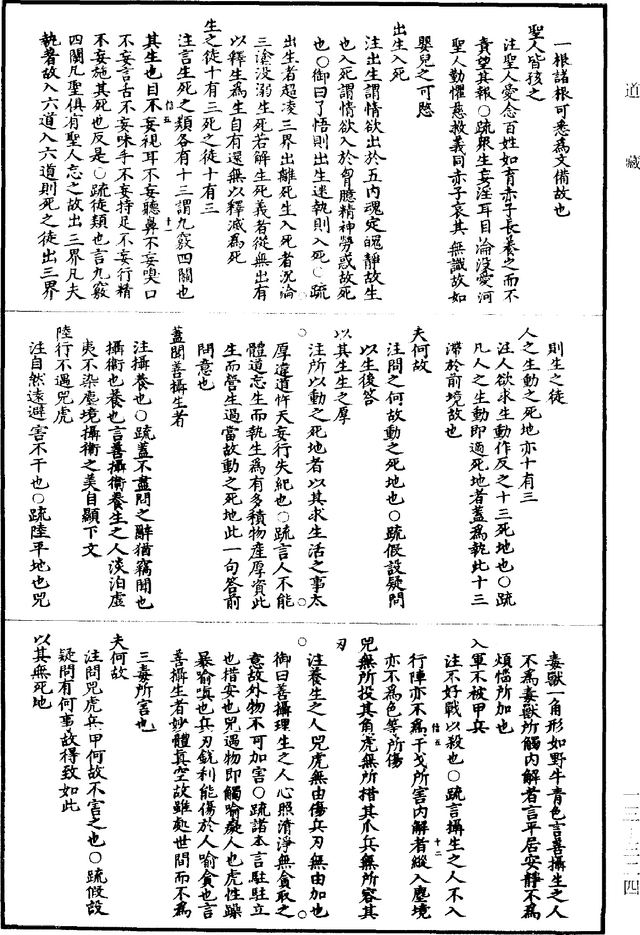 道藏
一根諸根可悉爲文備故也
聖人皆孩之
注聖人愛念百姓如育赤子長養之而不
責望其報○疏衆生妄注耳目淪沒愛河
聖人勤懼慈救義同赤子哀其無識故如
嬰兒之可愍
出生入死
注出生謂情欲出於五内魂定魄靜故生
也入死謂情欲入於胷臆精神勞惑故死
也○御曰了悟則出生迷執則入死○疏
出生者超凌三界出離死生入死者沉淪
三塗没溺生死若解生死義者從無出有
以釋生爲生自有還無以釋滅爲死
生之徒十有三死之徒十有三
注言生死之類各有十三謂九竅四關也
其生也目不妄視耳不妄聽鼻不妄嗅口
不妄言舌不妄味手不妄持足不妄行精
不妄施其死也反是○疏徒類也言九竅
四關凡聖俱有聖人忘之故出三界凡夫
執著故入六道入六道則死之徒出三界
則生之徒
人之生動之死地亦十有三
注人欲求生動作反之十三死地也○疏
凡人之生動即適死地者蓋爲執此十三
滯於前境故也
夫何故
注問之何故動之死地也○疏假設疑問
以生後答
以其生生之厚
注所以動之死地者以其求生活之事太
厚違道忤天妄行失紀也○疏言人不能
體道忘生而執生爲有多積物産厚資此
生而營生過當故動之死地此一句答前
問意也
蓋聞善攝生者
注攝養也○疏蓋不盡問之辭猶竊聞也
攝衛也養也言善攝衛養生之人淡泊虚
夷不染塵境攝衛之美目顯下文
陸行不遇兕虎
注自然遠避害不干也○疏陸平地也兕
毒獸一角形如野牛青色言善攝生之人
不爲毒獸所觸内解者言平居安靜不爲
煩惱所加也
入軍不被甲兵
注不好戰以殺也○疏言攝生之人不入
行陣亦不爲干戈所害内解者縱入塵境
亦不爲色等所傷
兕無所投其角虎無所措其爪兵無所容其
刃
注養生之人兕虎無由傷兵刃無由加也
御曰善攝理生之人心照清淨無貪取之
意故外物不可加害○疏諸本言駐駐立
也措安也兕遇物即觸喻癡人也虎性躁
暴喻嗔也兵刃銳利能傷於人喻貪也言
善攝生者妙體真空故雖處世間而不爲
三毒所害也
夫何故
注問兕虎兵甲何故不害之也○疏假設
疑問有何事故得致如此
以其無死地